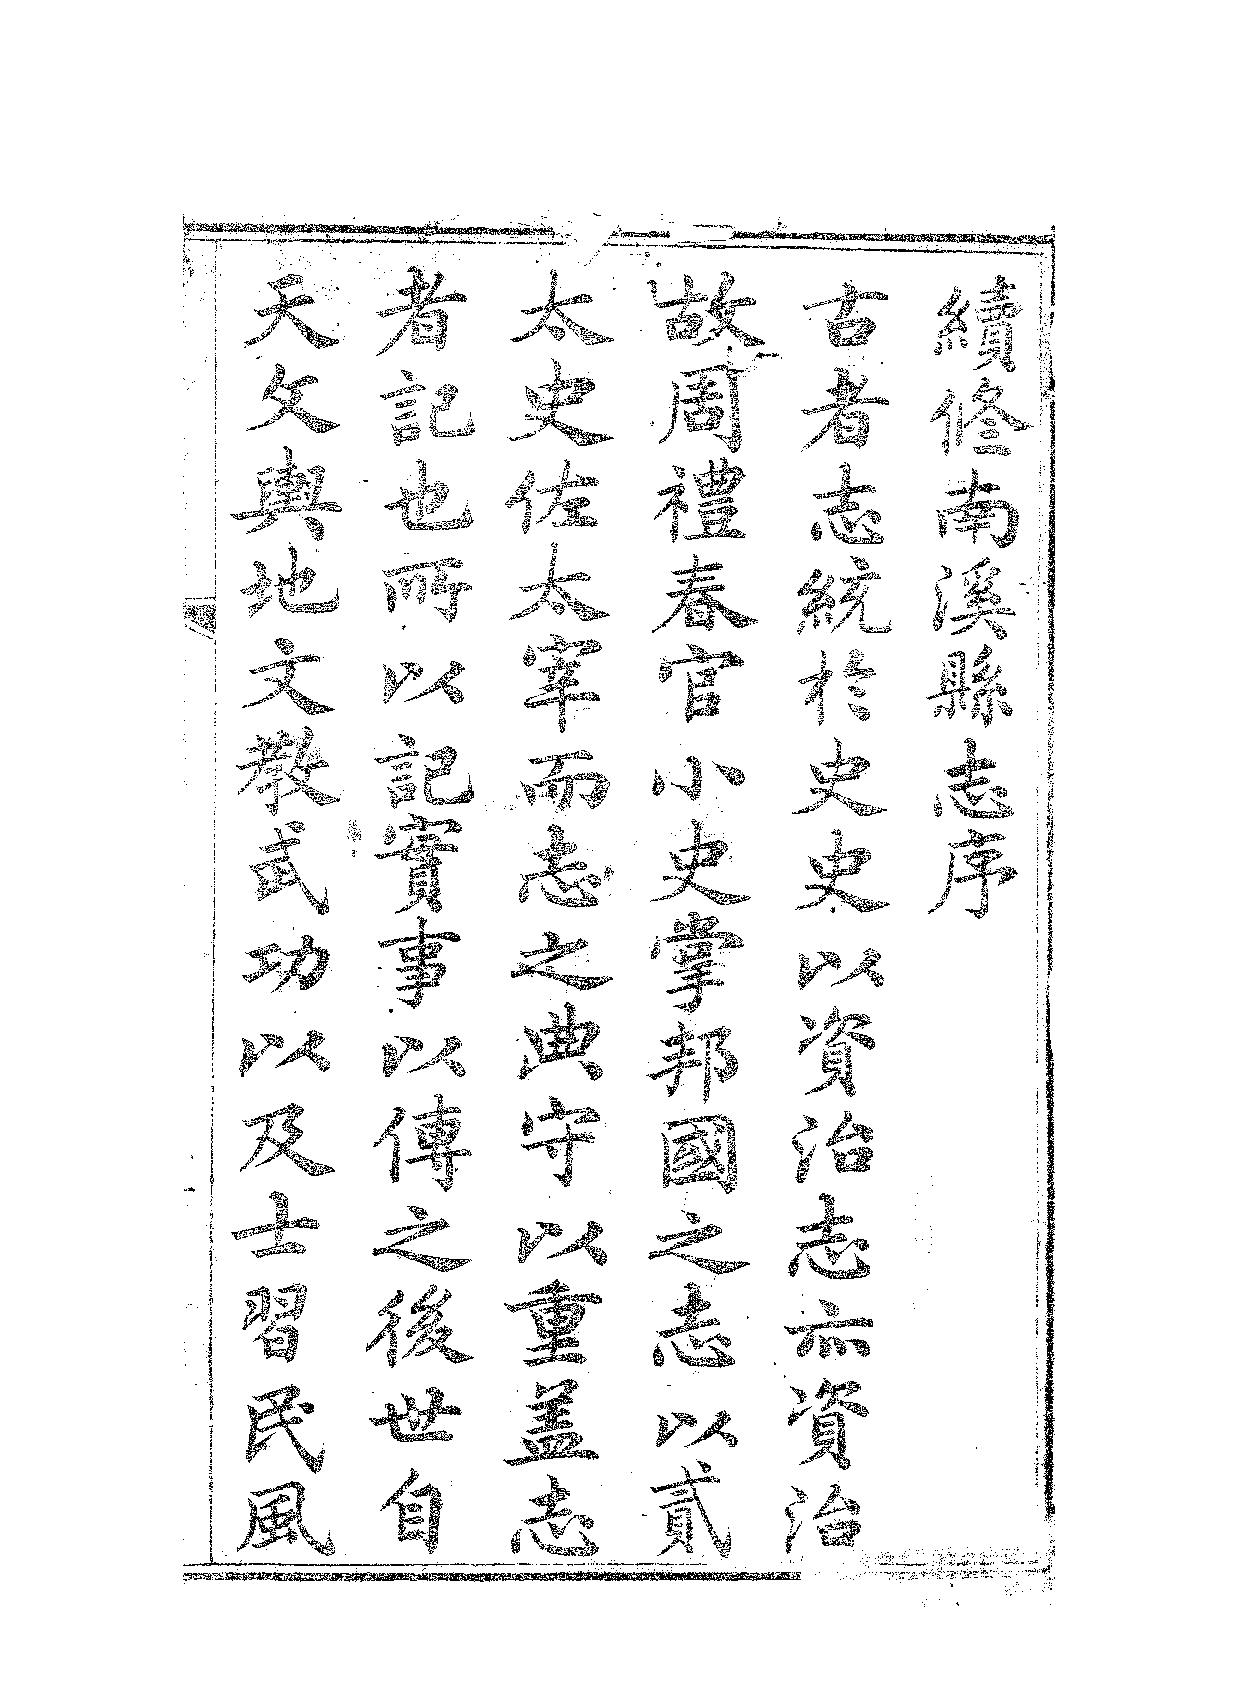 續修南溪縣志序
古者志統於史史以資治志亦資治
故周禮春官小史掌邦國之志以貳
太史佐太宰而志之典守以重盖志
者記也所以記實事以傳之後世自
天文輿地文教武功以及士習民風